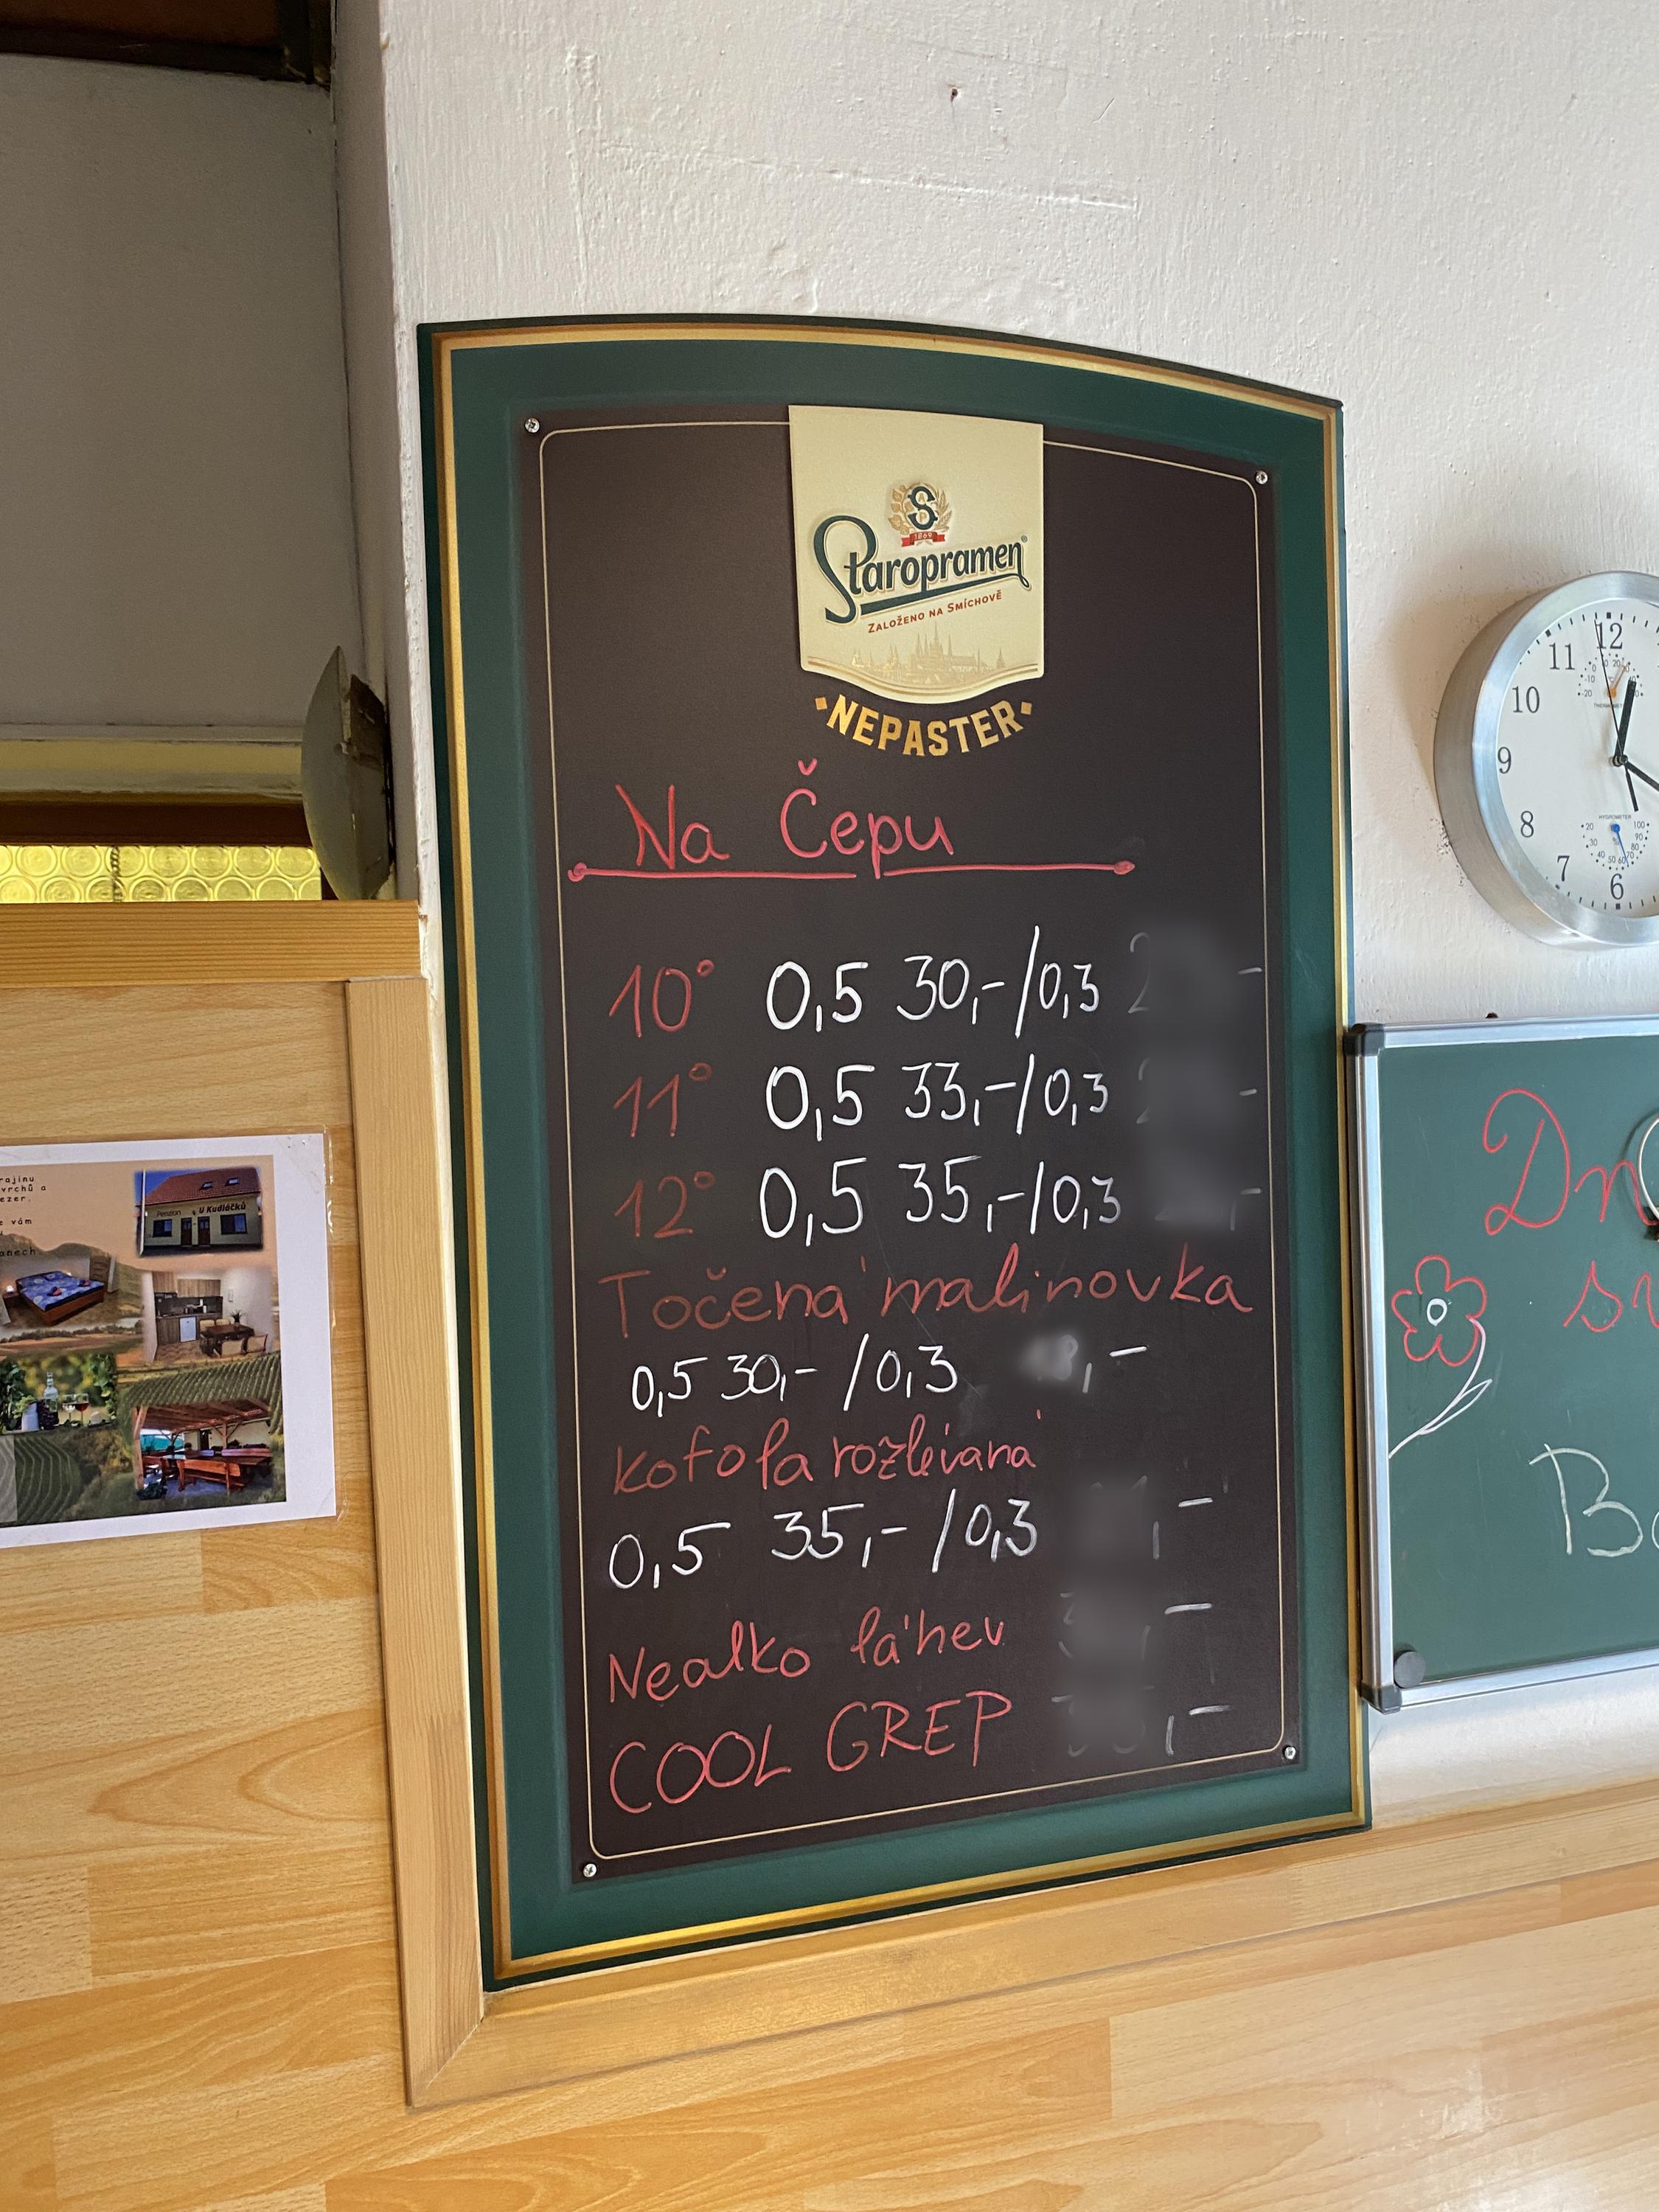 Staropramen
1869
ZALOŽENO NA SMÍCHOVĚ
NEPASTER
Na Čepu
10° 0,5 30,-/0,3
11° 0,5 33,-/0,3
12° 0,5 35,-/0,3
Točená malinovka
0,5 30,- /0,3
kofola rozlévaná
0,5 35,- /0,3
Nealko láhev
COOL GREP
12
11
10
9
8
7
6
HYGROMETER
rajinu
vrchů a
ezer.
e vám
Penzion U Kudláčků